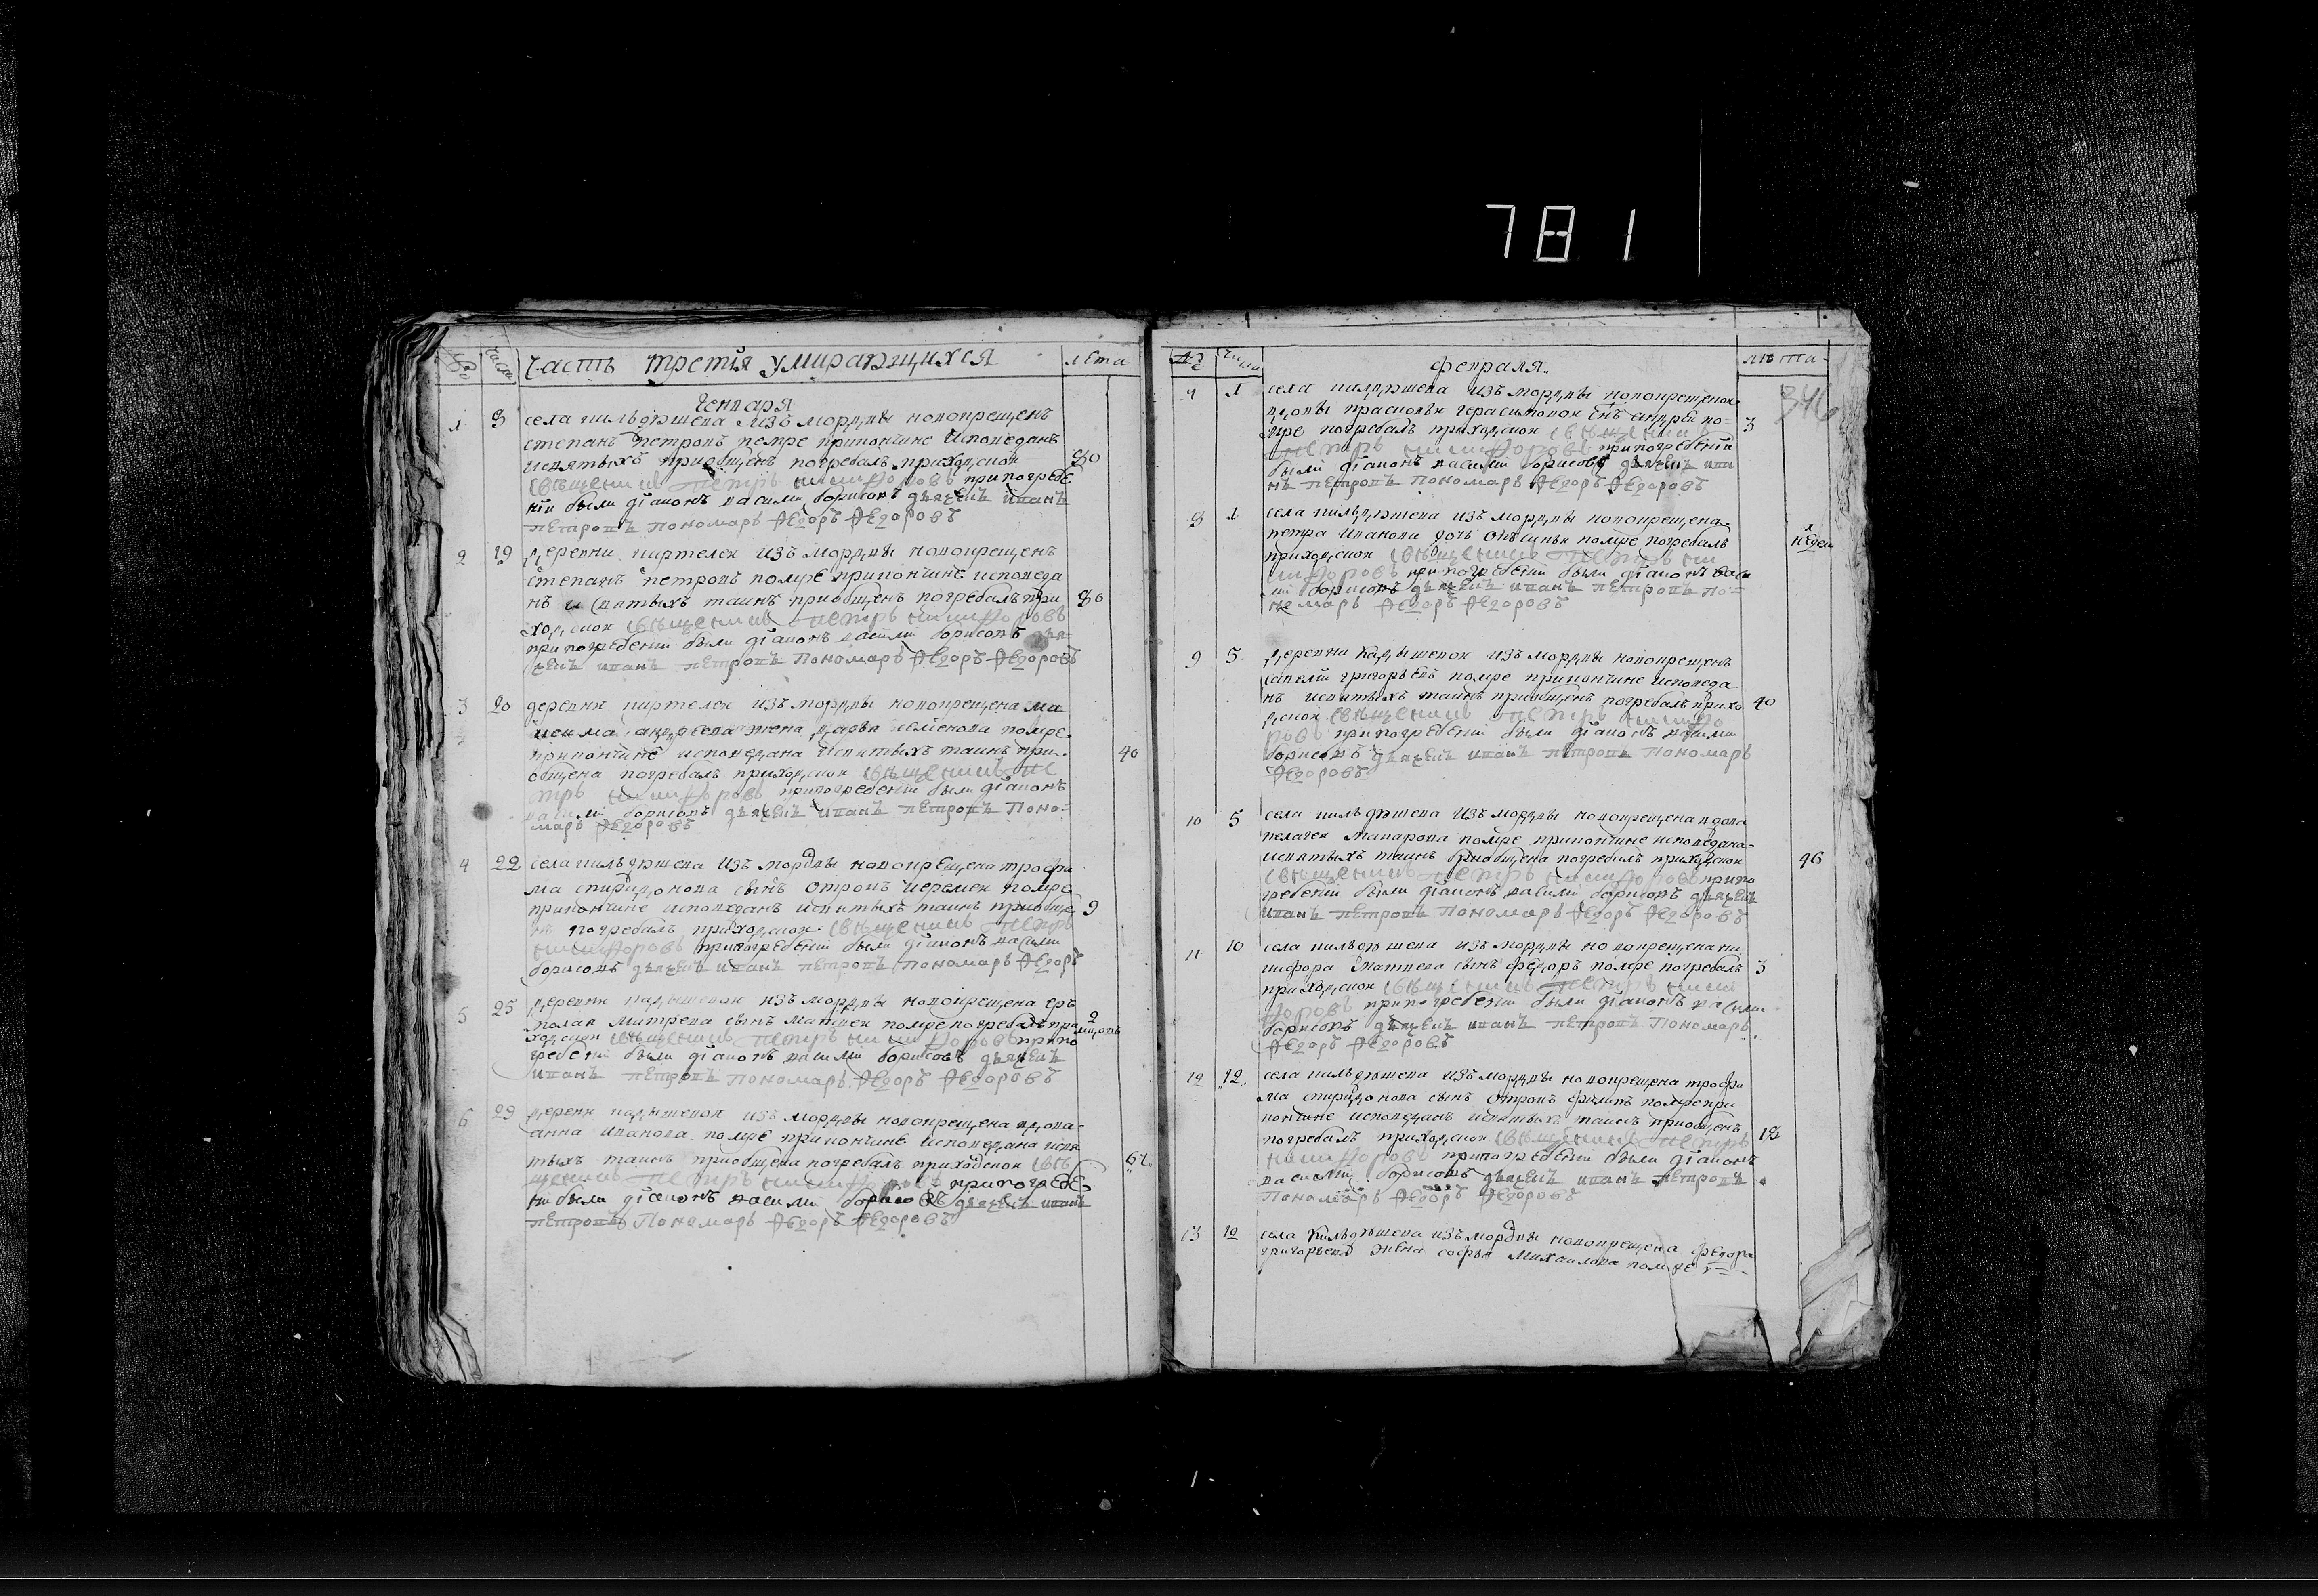 781
часть третія умирающихся
лета
генваря
1 8 села кильдюшева изъ мордвы новокрещенъ
степанъ петровъ помре при кончине исповеданъ
и святыхъ приобщенъ погребалъ приходской 80
священникъ Петръ никифоровъ при погребе
ніи были діаконъ василій борисовъ дьячекъ иванъ
петровъ пономарь Федоръ Федоровъ
2 19 деревни киртелей изъ мордвы новокрещенъ
степанъ петровъ помре при кончине исповеда
нъ и святыхъ таинъ приобщенъ погребалъ при 80
ходской священникъ Петръ никифоровъ
при погребеніи были діаконъ василій борисовъ дья
чекъ иванъ петровъ Пономарь Федоръ Федоровъ
3 20 деревни киртелей изъ мордвы новокрещена ма
андреева жена дарья семенова помре
при кончине исповедана и святыхъ таинъ при 40
общена погребалъ приходской священникъ Пе
тръ никифоровъ при погребеніи были діаконъ
василій борисовъ дьячекъ иванъ петровъ Поно=
марь Федоровъ
4 22 села кильдюшева изъ мордвы новокрещена трофи
ма спиридонова сынъ отрокъ иеремей помре
при кончине исповеданъ и святыхъ таинъ приобще 9
нъ погребалъ приходской священникъ Петръ
никифоровъ при погребеніи были діаконъ василій
борисовъ дьячекъ иванъ петровъ Пономарь Федоръ
5 25 деревни кадышевой изъ мордвы новокрещена ер
молая матвеева сынъ матвей помре погребалъ при 2
ходской священникъ Петръ никифоровъ при по
гребеніи были діаконъ василій борисовъ дьячекъ
иванъ петровъ Пономарь Федоръ Федоровъ
6 29 деревни кадышевой изъ мордвы новокрещена вдова
анна иванова помре при кончине исповедана и свя
тыхъ таинъ приобщена погребалъ приходской свя
щеникъ Петръ никифоровъ при погребе
ніи были діаконъ василій борисовъ дьячекъ иванъ
петровъ Пономарь Федоръ Федоровъ
февраля
лѣта
346
1 села кильдюшева изъ мордвы новокрещеной
вдовы прасковьи герасимовой сынъ андрей по=
мре погребалъ приходской священникъ 3
Петръ никифоровъ при погребеніи
были діаконъ василій борисовъ дьячекъ ива
нъ петровъ Пономарь Федоръ Федоровъ
8 1 села кильдюшева изъ мордвы новокрещена
петра иванова дочь помре погребалъ
приходской священникъ Петръ ни
кифоровъ при погребеніи были діаконъ васи
лій борисовъ дьячекъ иванъ петровъ по=
номарь Федоръ Федоровъ
9 5 деревни кадышевой изъ мордвы новокрещенъ
савелій григорьевъ помре при кончине исповеда
нъ и святыхъ таинъ приобщенъ погребалъ прихо 40
дской священникъ Петръ никифо
ровъ при погребеніи были діаконъ василій
борисовъ дьячекъ иванъ петровъ Пономарь
Федоровъ
10 5 села кильдюшева изъ мордвы новокрещена вдова
пелагея макарова помре при кончине исповедана
и святыхъ таинъ приобщена погребалъ приходской
священникъ Петръ никифоровъ при по
гребеніи были діаконъ василій борисовъ дьячекъ
иванъ петровъ Пономарь Федоръ Федоровъ
11 10 села кильдюшева изъ мордвы новокрещена ни
кифора матвеева сынъ федоръ помре погребалъ 3
приходской священникъ Петръ ники
форовъ при погребеніи были діаконъ василій
борисовъ дьячекъ иванъ петровъ Пономарь
Федоръ Федоровъ
12 12 села кильдюшева изъ мордвы новокрещена трофи
ма спиридонова сынъ отрокъ филипъ помре при
кончине исповеданъ и святыхъ таинъ приобщенъ
погребалъ приходской священникъ Петръ
никифоровъ при погребеніи были діаконъ
василій борисовъ дьячекъ иванъ петровъ
Пономарь Федоръ Федоровъ
13 села кильдюшева изъ мордвы новокрещена федора
григорьева жена софья михаилова помре